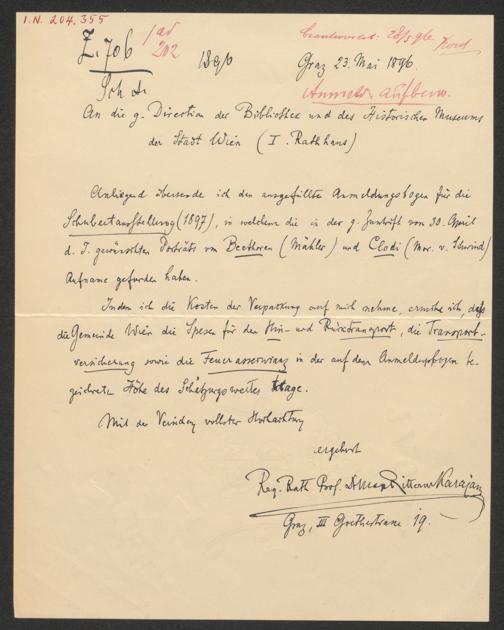 I.N. 204.355
Z. 706 / ad 202 1896
Beantwortet: 28/5 96
Graz 23. Mai 1896.
Anmeld. Aufbew.
An die g. Direction der Bibliothek und des Historischen Museums
der Stadt Wien (I. Rathhaus)
Anliegend übersende ich den ausgefüllten Anmeldungsbogen für die
Schubertausstellung (1897), in welchem die in der g. Zuschrift vom 30. April
d. J. gewünschten Porträts von Beethoven (Mähler) und Clodi (Mor. v. Schwind)
Aufname gefunden haben.
Indem ich die Kosten der Verpackung auf mich nehme, ersuche ich, daß
die Gemeinde Wien die Spesen für den Hin- und Rücktransport, die Transport-
versicherung sowie die Feuerassecuranz in der auf dem Anmeldungsbogen be-
zeichneten Höhe des Schätzungswertes trage.
Mit der Versicherung vollster Hochachtung
ergebenst
Reg. Rath Prof. Dr Max Ritter von Karajan
Graz, III Goethestrasse 19.